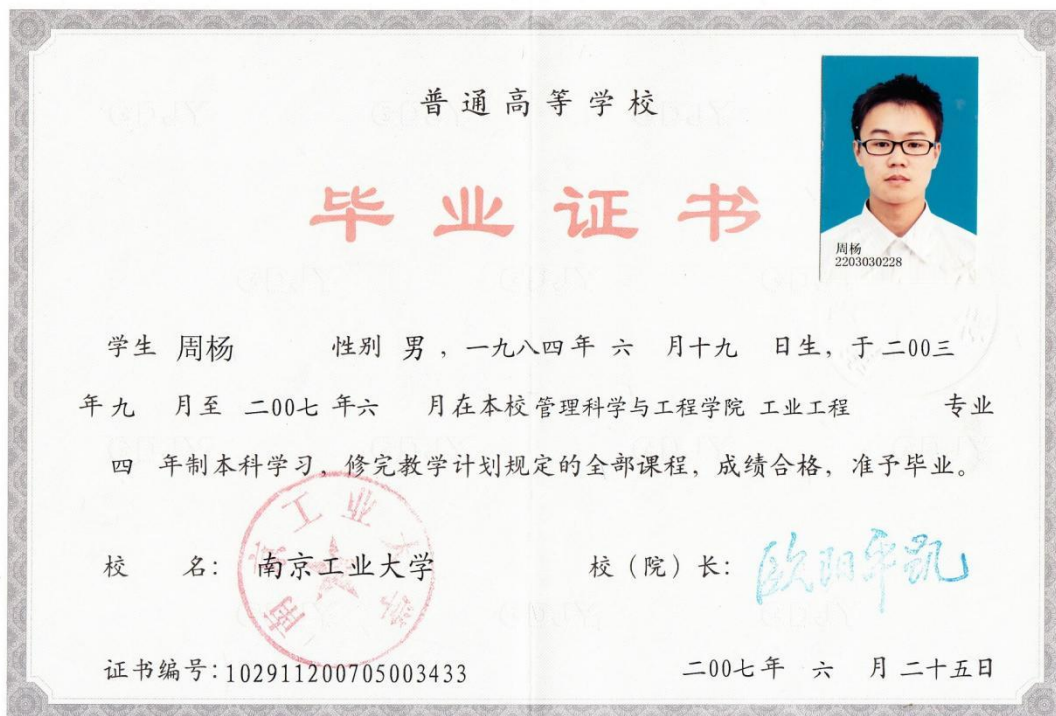 普通高等学校
毕业证书
周杨
2203030228
学生 周杨 性别 男 ，一九八四年 六 月十九 日生，于二00三
年九 月至 二00七 年六 月在本校管理科学与工程学院 工业工程 专业
四 年制本科学习，修完教学计划规定的全部课程，成绩合格，准予毕业。
校 名： 南京工业大学
南京工业大学
校（院）长： 欧阳平凯
证书编号：102911200705003433
二00七年 六 月二十五日